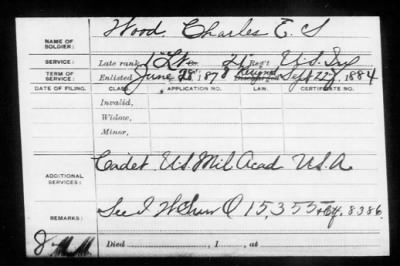 NAME OF SOLDIER: Wood, Charles E. S
SERVICE: Late rank, 1" Lt. 21" Reg't U.S. Inf
TERM OF SERVICE: Enlisted June 28", 1878 Resigned Sept 22", 1884
DATE OF FILING. CLASS. APPLICATION NO. LAW. CERTIFICATE NO.
Invalid,
Widow,
Minor,
ADDITIONAL SERVICES: Cadet U.S. Mil Acad U.S.A.
REMARKS: See I W Surv O 15,355 + Ctf. 8386.
Died , 1 , at